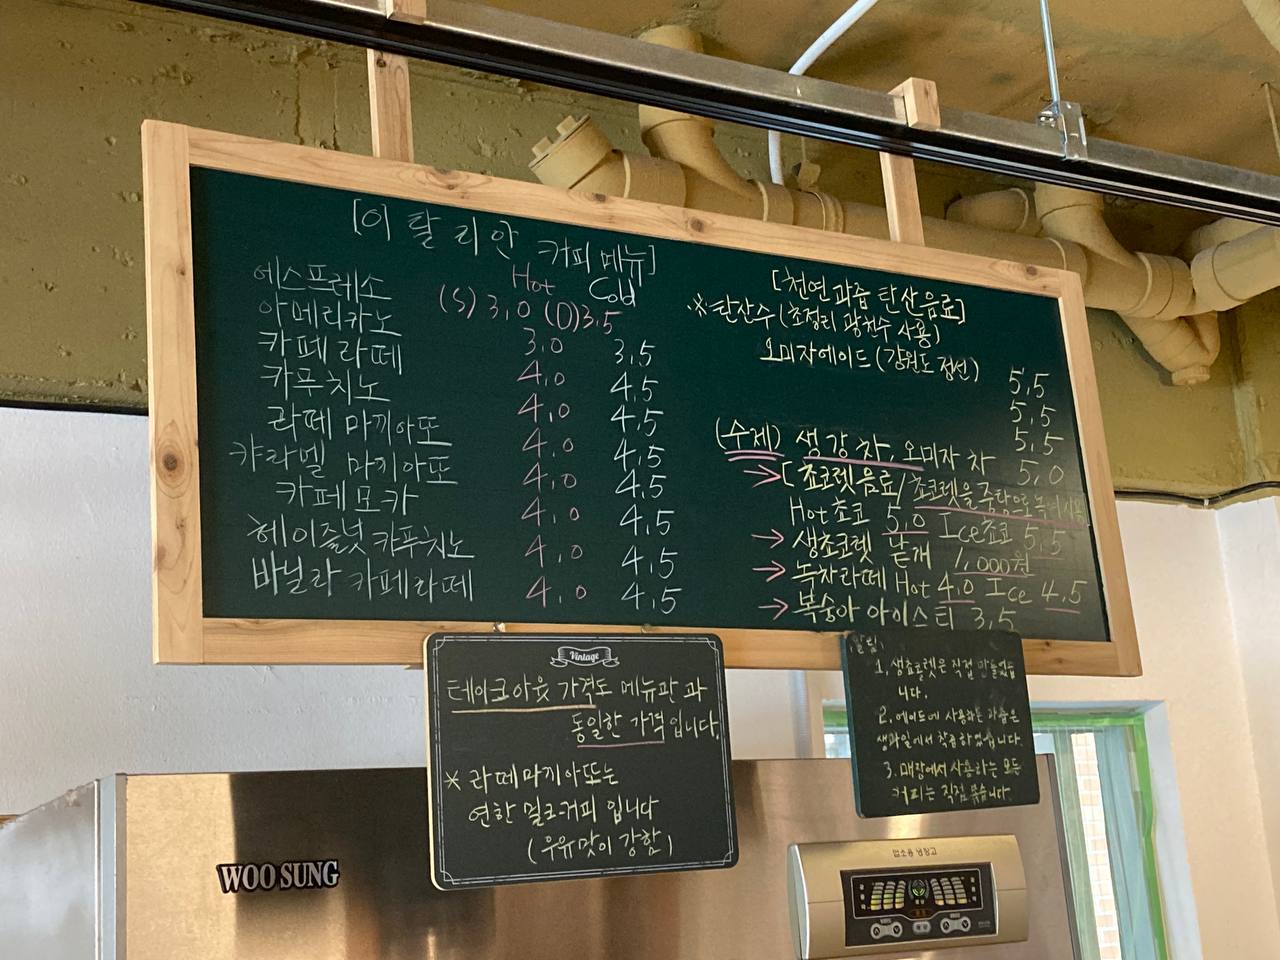 [이탈리안 커피 메뉴]
Hot Cold
에스프레소 (S) 3,0 (D)3,5
아메리카노 3,0 3,5
카페라떼 4,0 4,5
카푸치노 4,0 4,5
라떼 마끼아또 4,0 4,5
캬라멜 마끼아또 4,0 4,5
카페모카 4,0 4,5
헤이즐넛 카푸치노 4,0 4,5
바닐라 카페라떼 4,0 4,5
[천연과즙 탄산음료]
※탄산수(초정리 광천수 사용)
오미자에이드(강원도 정선) 5,5
5,5
5,5
(수제) 생강차, 오미자 차 5,0
→[쵸코렛음료/쵸코렛을 중탕으로 녹여
Hot쵸코 5,0 Ice쵸코 5,5
→ 생쵸코렛 낱개 1,000원
→ 녹차라떼 Hot 4,0 Ice 4,5
→ 복숭아 아이스티 3,5
Vintage
테이크아웃 가격도 메뉴판과
동일한 가격입니다.
※ 라떼마끼아또는
연한 밀크커피 입니다
(우유맛이 강함)
알림)
1, 생쵸코렛은 직접 만들었습
니다.
2. 에이드에 사용하는 과즙은
생과일에서 착즙하였습니다.
3. 매장에서 사용하는 모든
커피는 직접 볶습니다
WOO SUNG
업소용 냉장고